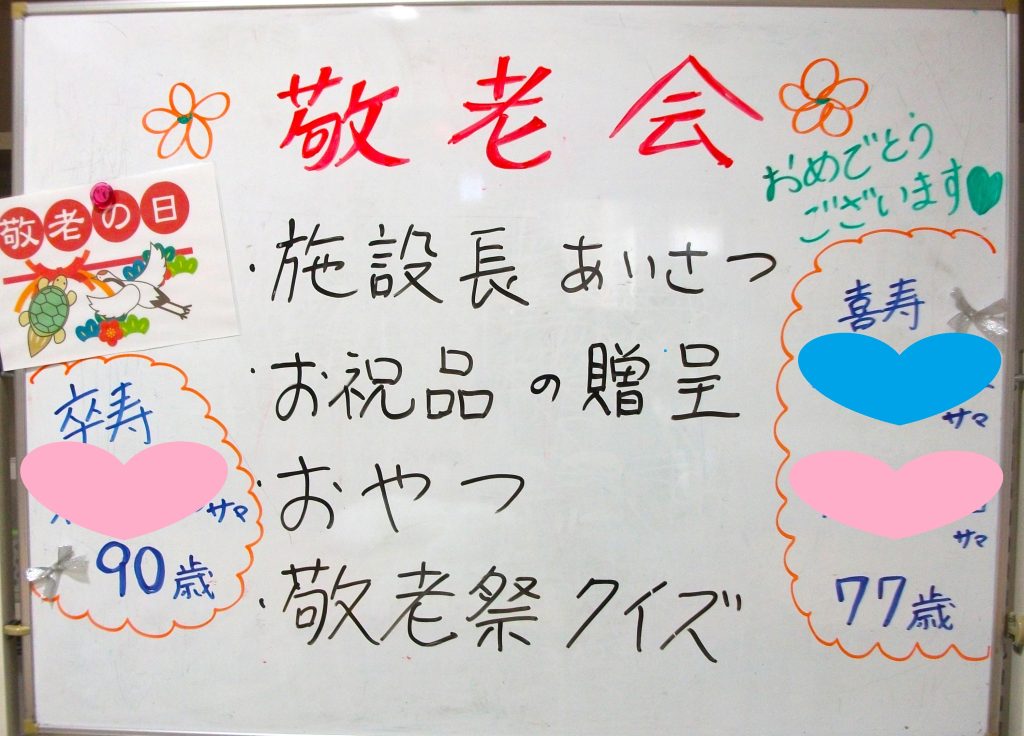 敬老会
おめでとう
ございます
敬老の日
・施設長 あいさつ
・お祝品の贈呈
・おやつ
・敬老祭クイズ
卒寿
サマ
90歳
喜寿
サマ
サマ
77歳